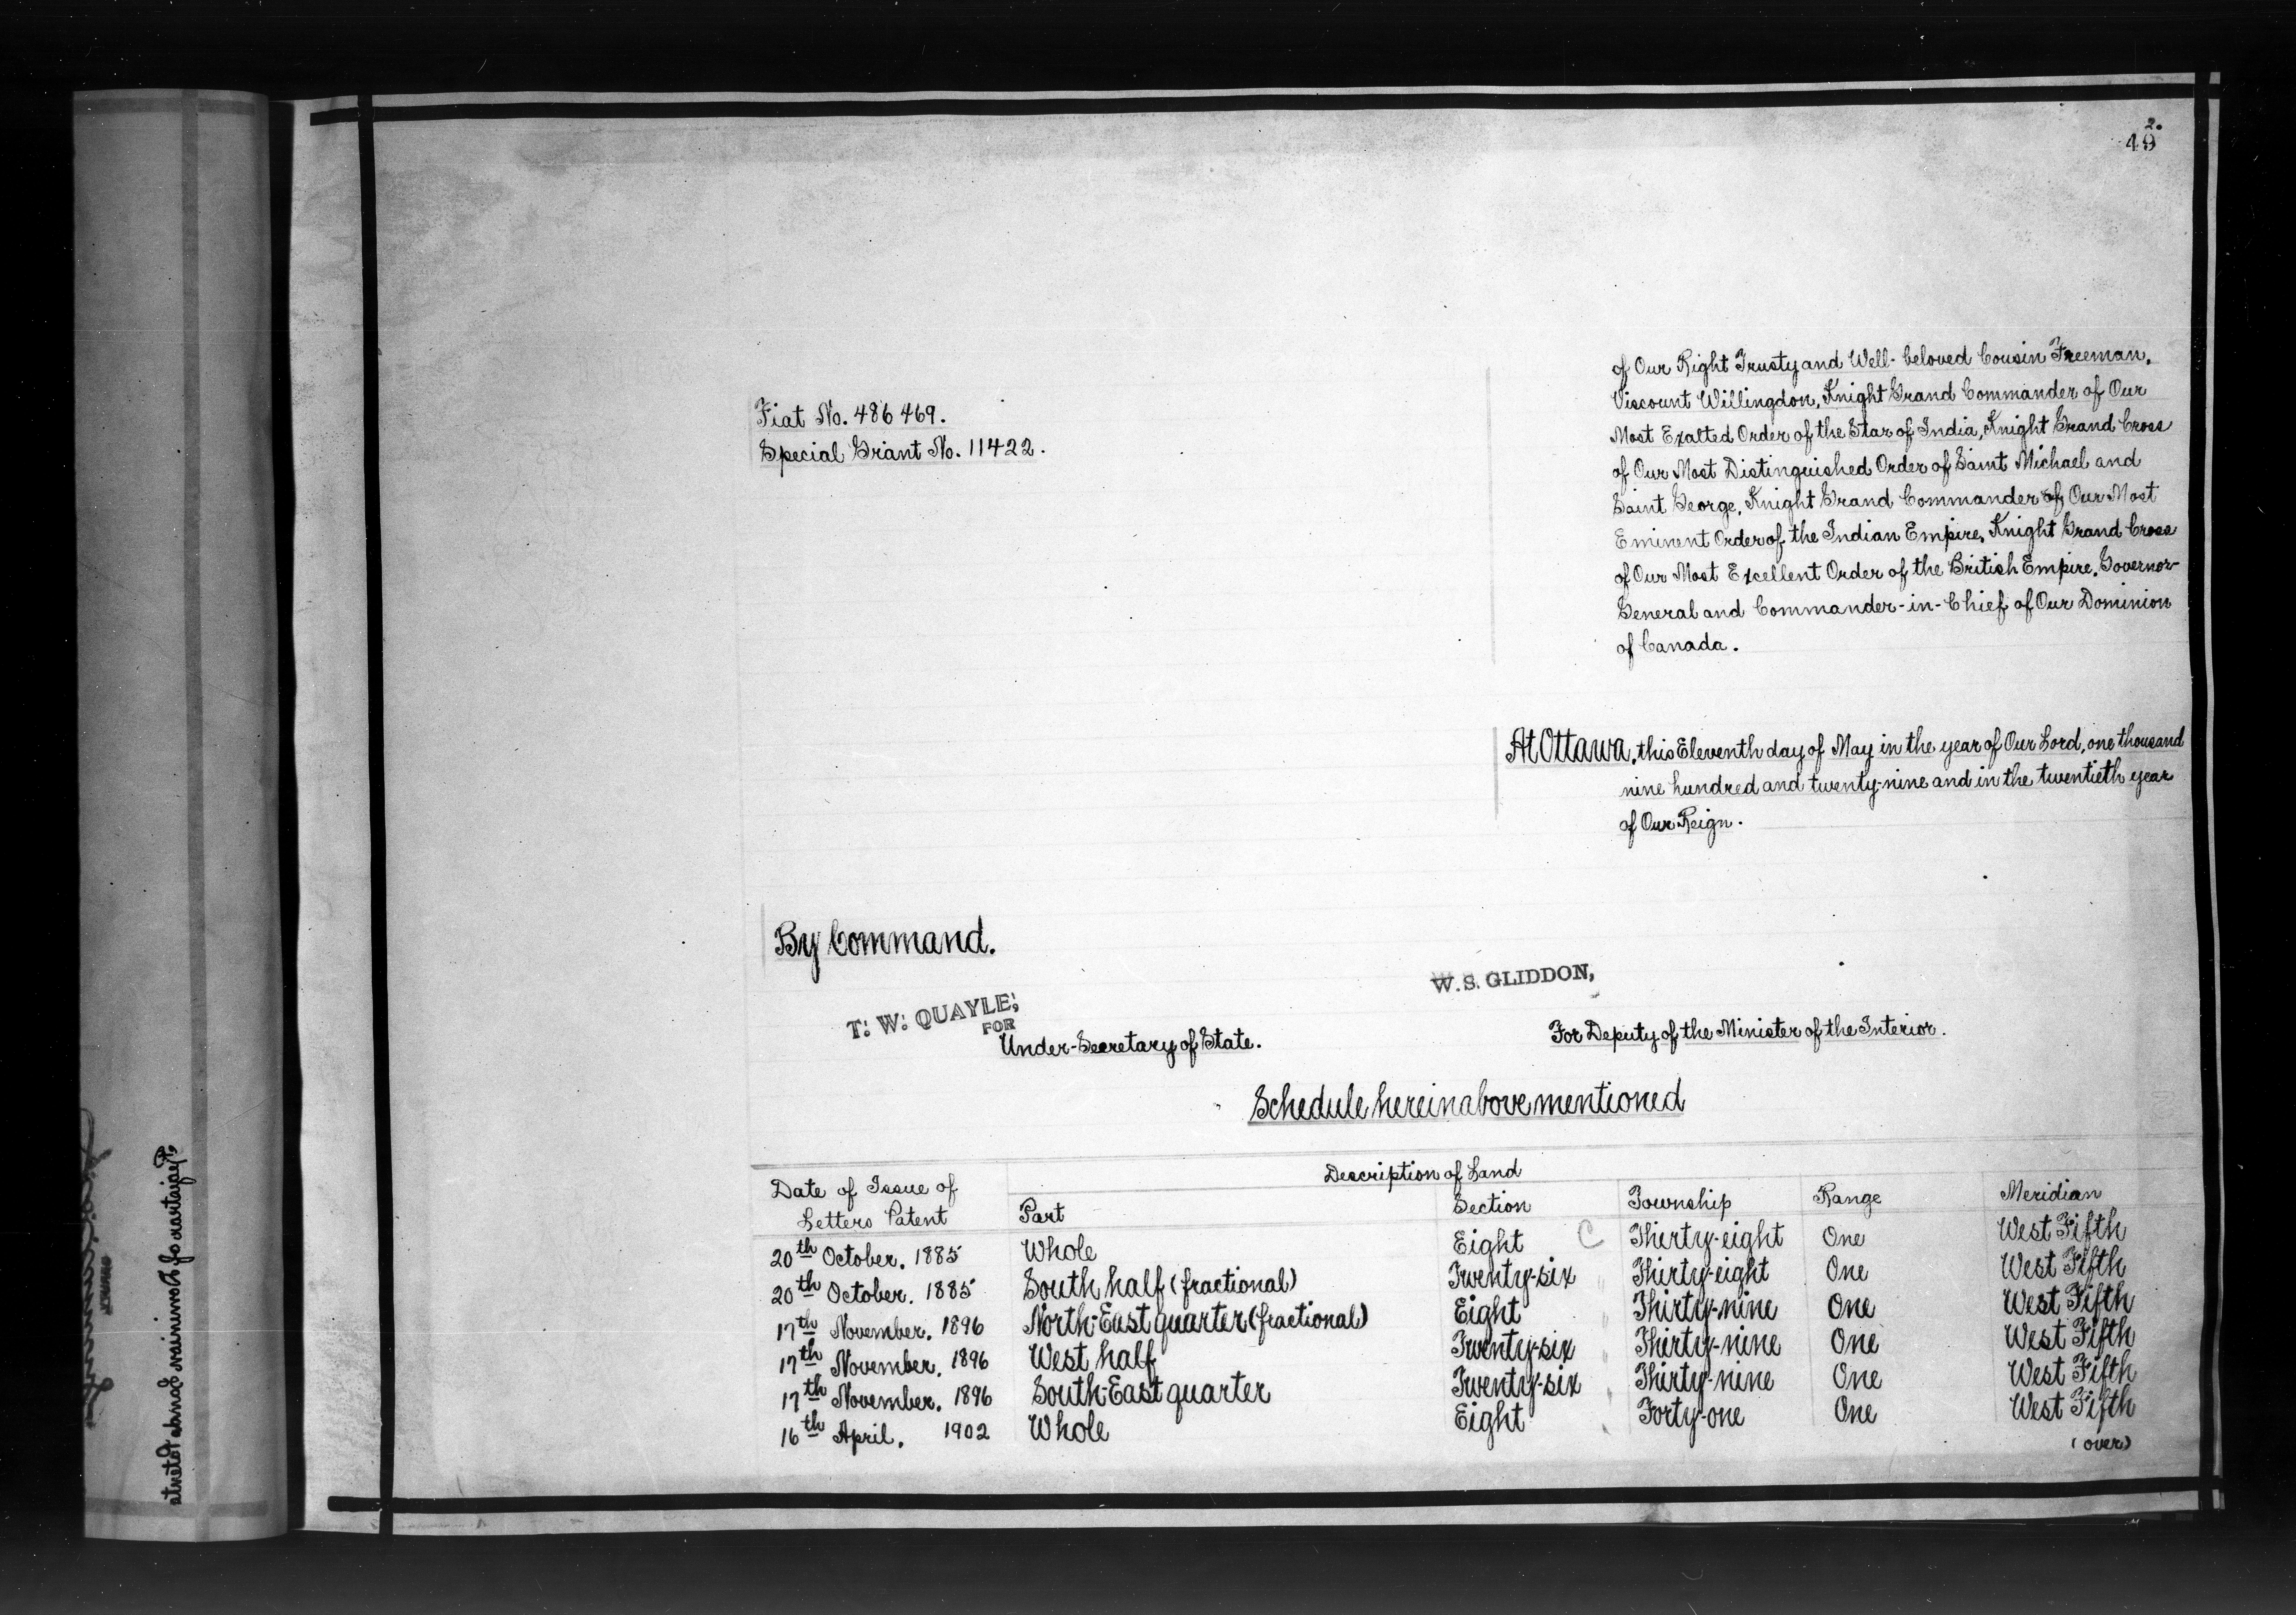 2.
49
of Our Right Trusty and Well-beloved Cousin Freeman,
Viscount Willingdon, Knight Grand Commander of Our
Most Exalted Order of the Star of India, Knight Grand Cross
of Our Most Distinguished Order of Saint Michael and
Saint George, Knight Grand Commander of Our Most
Eminent Order of the Indian Empire, Knight Grand Cross
of Our Most Excellent Order of the British Empire, Governor-
General and Commander-in-Chief of Our Dominion
of Canada.
Fiat No. 486469.
Special Grant No. 11422.
At Ottawa, this Eleventh day of May in the year of Our Lord, one thousand
nine hundred and twenty-nine and in the twentieth year
of Our Reign.
By Command.
T. W. QUAYLE,
FOR
Under-Secretary of State.
W. S. GLIDDON,
For Deputy of the Minister of the Interior.
Schedule hereinabove mentioned
Date of Issue of Letters Patent Description of Land
Part Section Township Range Meridian
20th October, 1885 Whole Eight C Thirty-eight One West Fifth
20th October, 1885 South half (fractional) Twenty-six " Thirty-eight One West Fifth
17th November, 1896 North-East quarter (fractional) Eight " Thirty-nine One West Fifth
17th November, 1896 West half Twenty-six " Thirty-nine One West Fifth
17th November, 1896 South-East quarter Twenty-six " Thirty-nine One West Fifth
16th April, 1902 Whole Eight " Forty-one One West Fifth
(over)
Registrar of Dominion Lands Patents